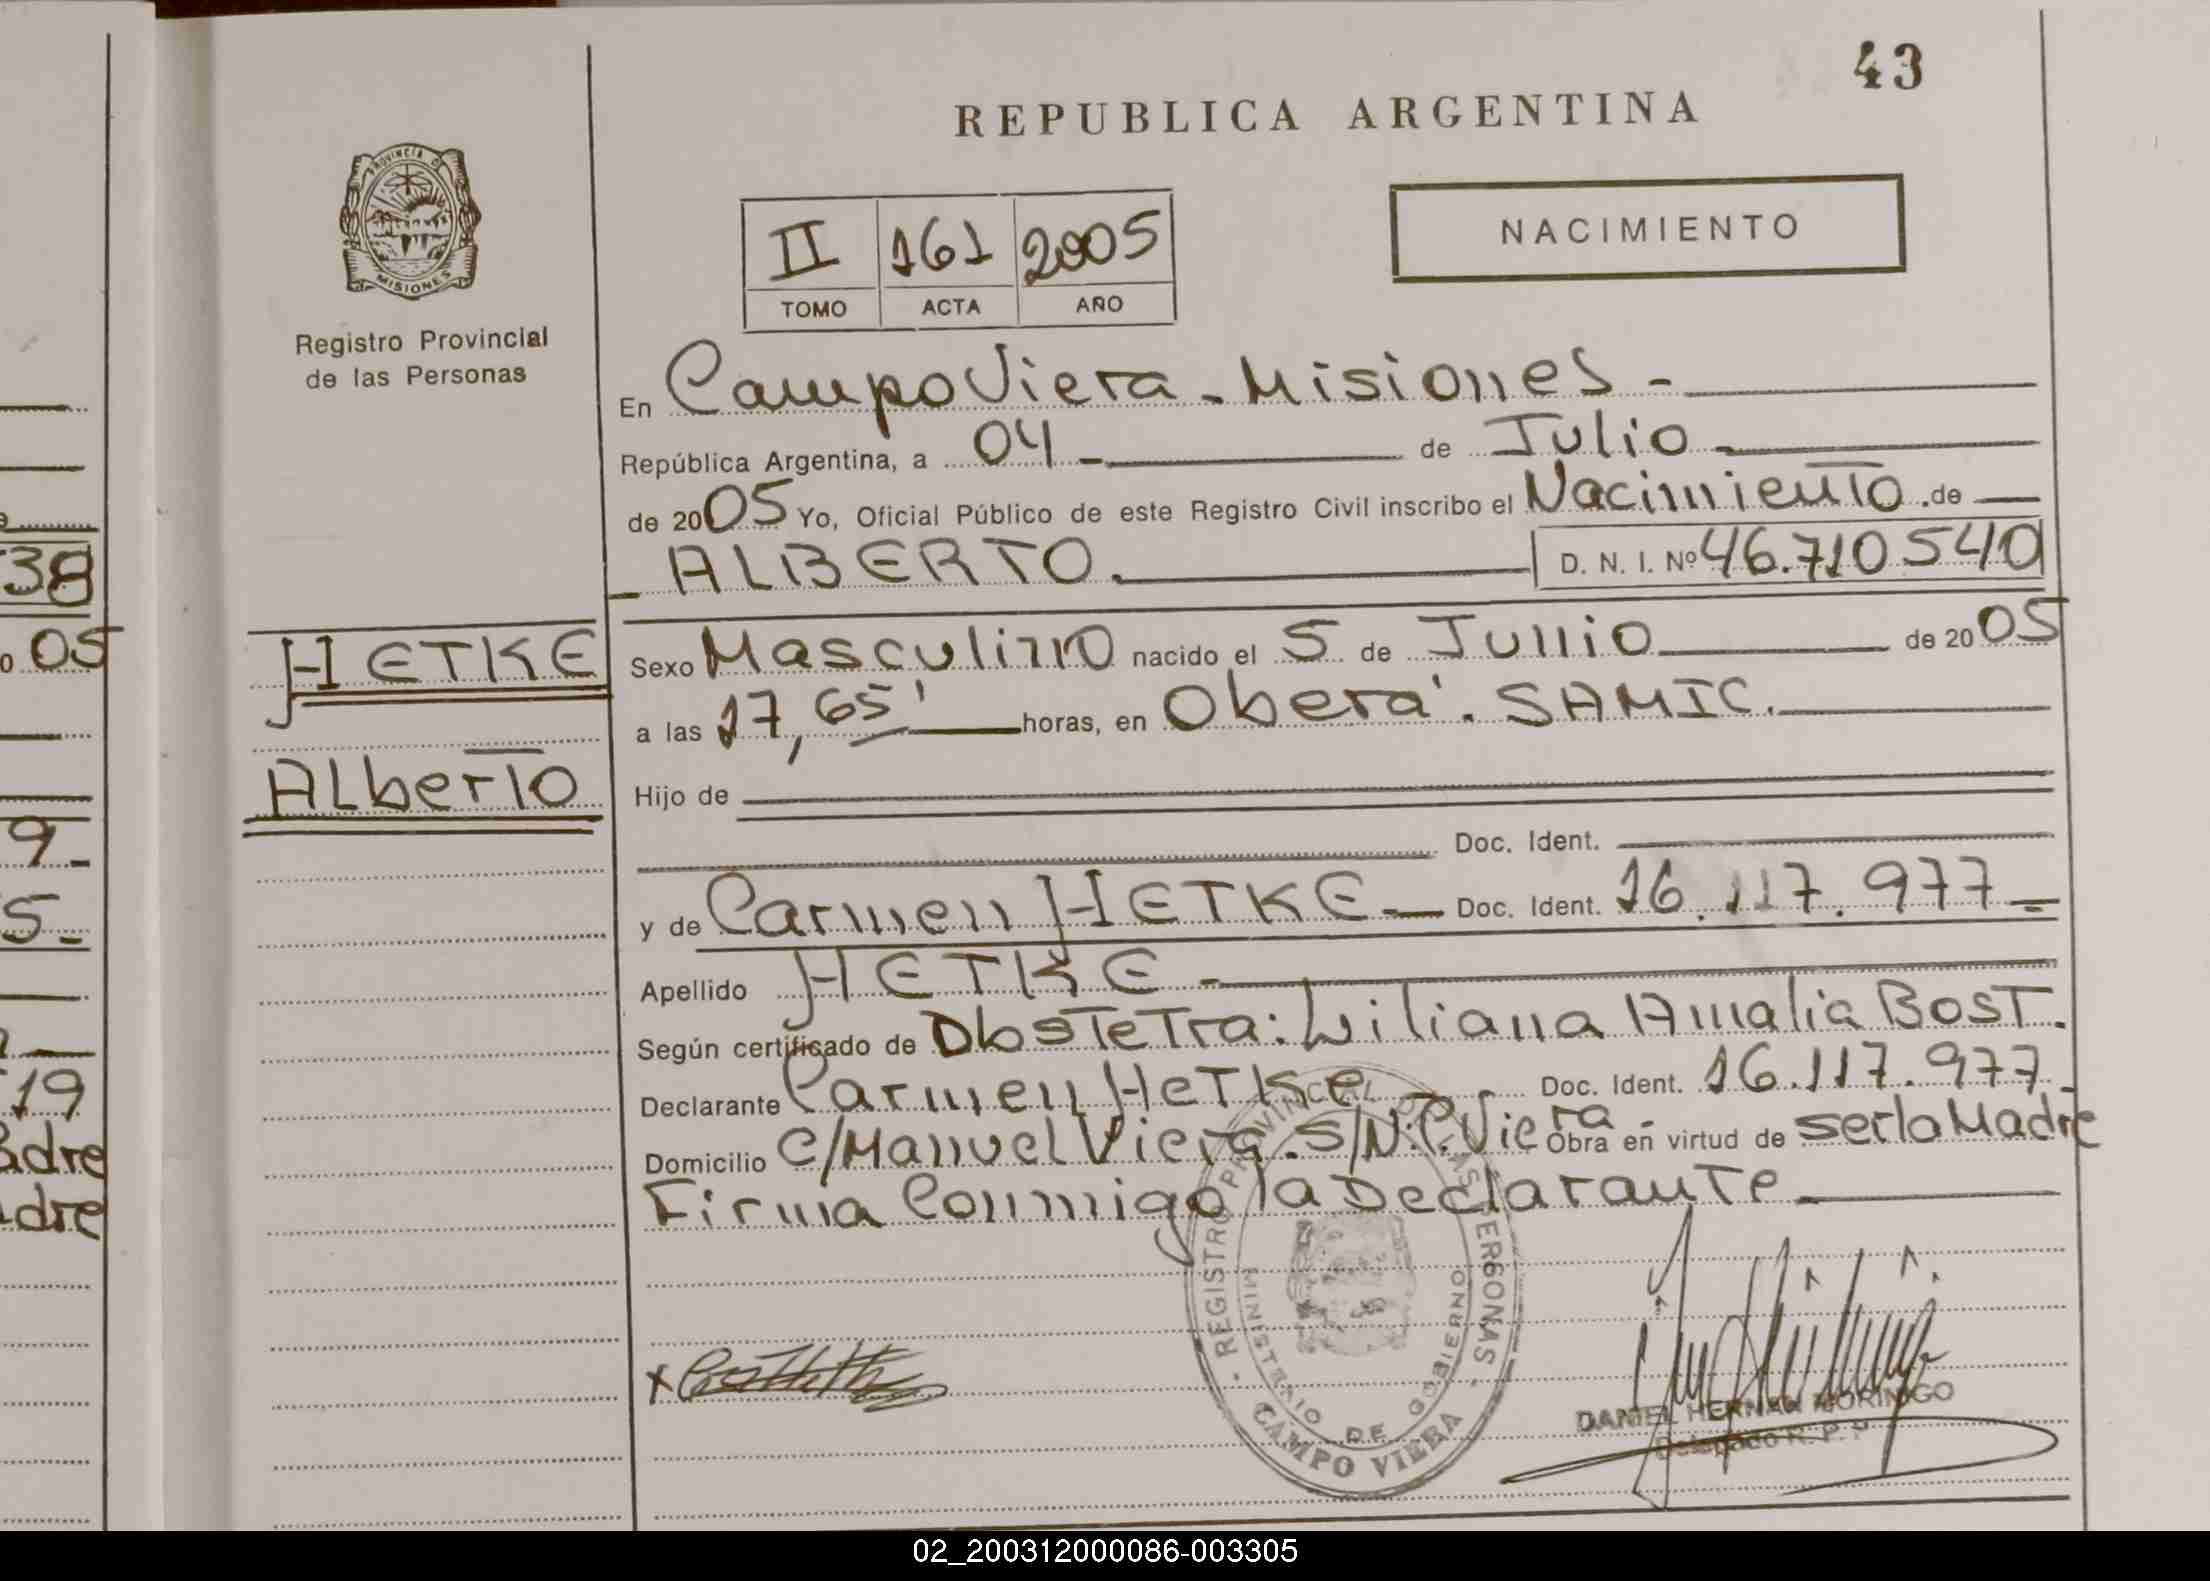 43
REPUBLICA ARGENTINA
PROVINCIA DE
MISIONES
NACIMIENTO
II 161 2005
TOMO ACTA AÑO
Registro Provincial
de las Personas
En Campo Viera - Misiones -
República Argentina, a 04 - de Julio -
de 2005 Yo, Oficial Público de este Registro Civil inscribo el Nacimiento de
ALBERTO. D. N. I. Nº 46.710540
HETKE
Alberto
Sexo Masculino nacido el 5 de Junio de 2005
a las 17, 65' horas, en Oberá. SAMIC.
Hijo de
Doc. Ident.
y de Carmen HETKE - Doc. Ident. 16.117.977 -
Apellido HETKE -
Según certificado de Obstetra: Liliana Amalia Bost.
Declarante Carmen Hetke Doc. Ident. 16.117.977.
Domicilio C/Manuel Viera. S/N. C. Viera - Obra en virtud de ser la Madre
Firma Conmigo la Declarante -
REGISTRO PROVINCIAL DE LAS PERSONAS
MINISTERIO DE GOBIERNO
CAMPO VIERA
DANIEL HERNAN MORINIGO
Delegado R. P. P
38
o 05
9-
5-
19
adre
adre
02_200312000086-003305